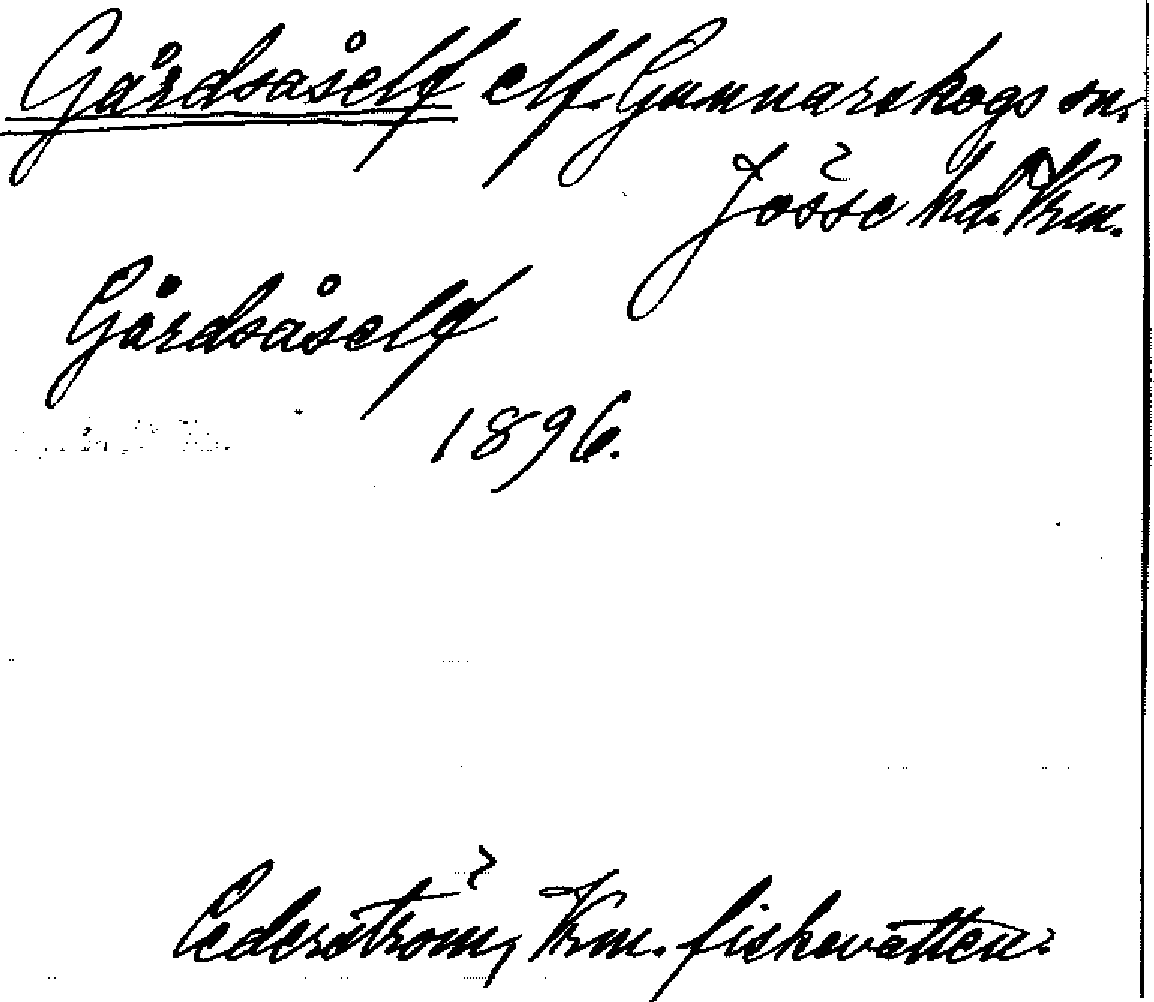 Gårdsåself elf. Gunnarskogs sn.
Jösse hd. Vrm.
Gårdsåself
1896.
Cederström, Vrm. fiskevatten.